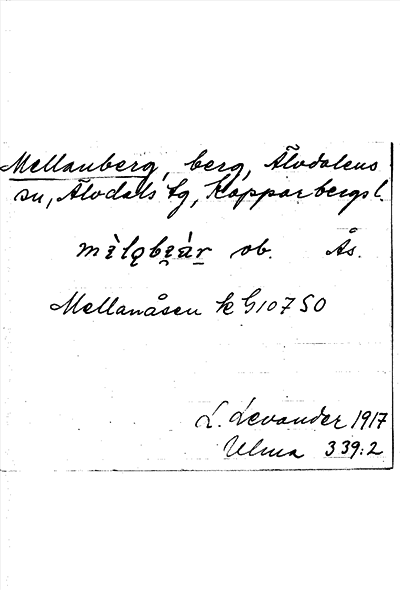 Mellanberg, berg, Älvdalens
sn, Älvdals tg, Kopparbergs l.
ob. Ås.
Mellanåsen k G 107 SO
L. Levander 1917
Ulma 339:2